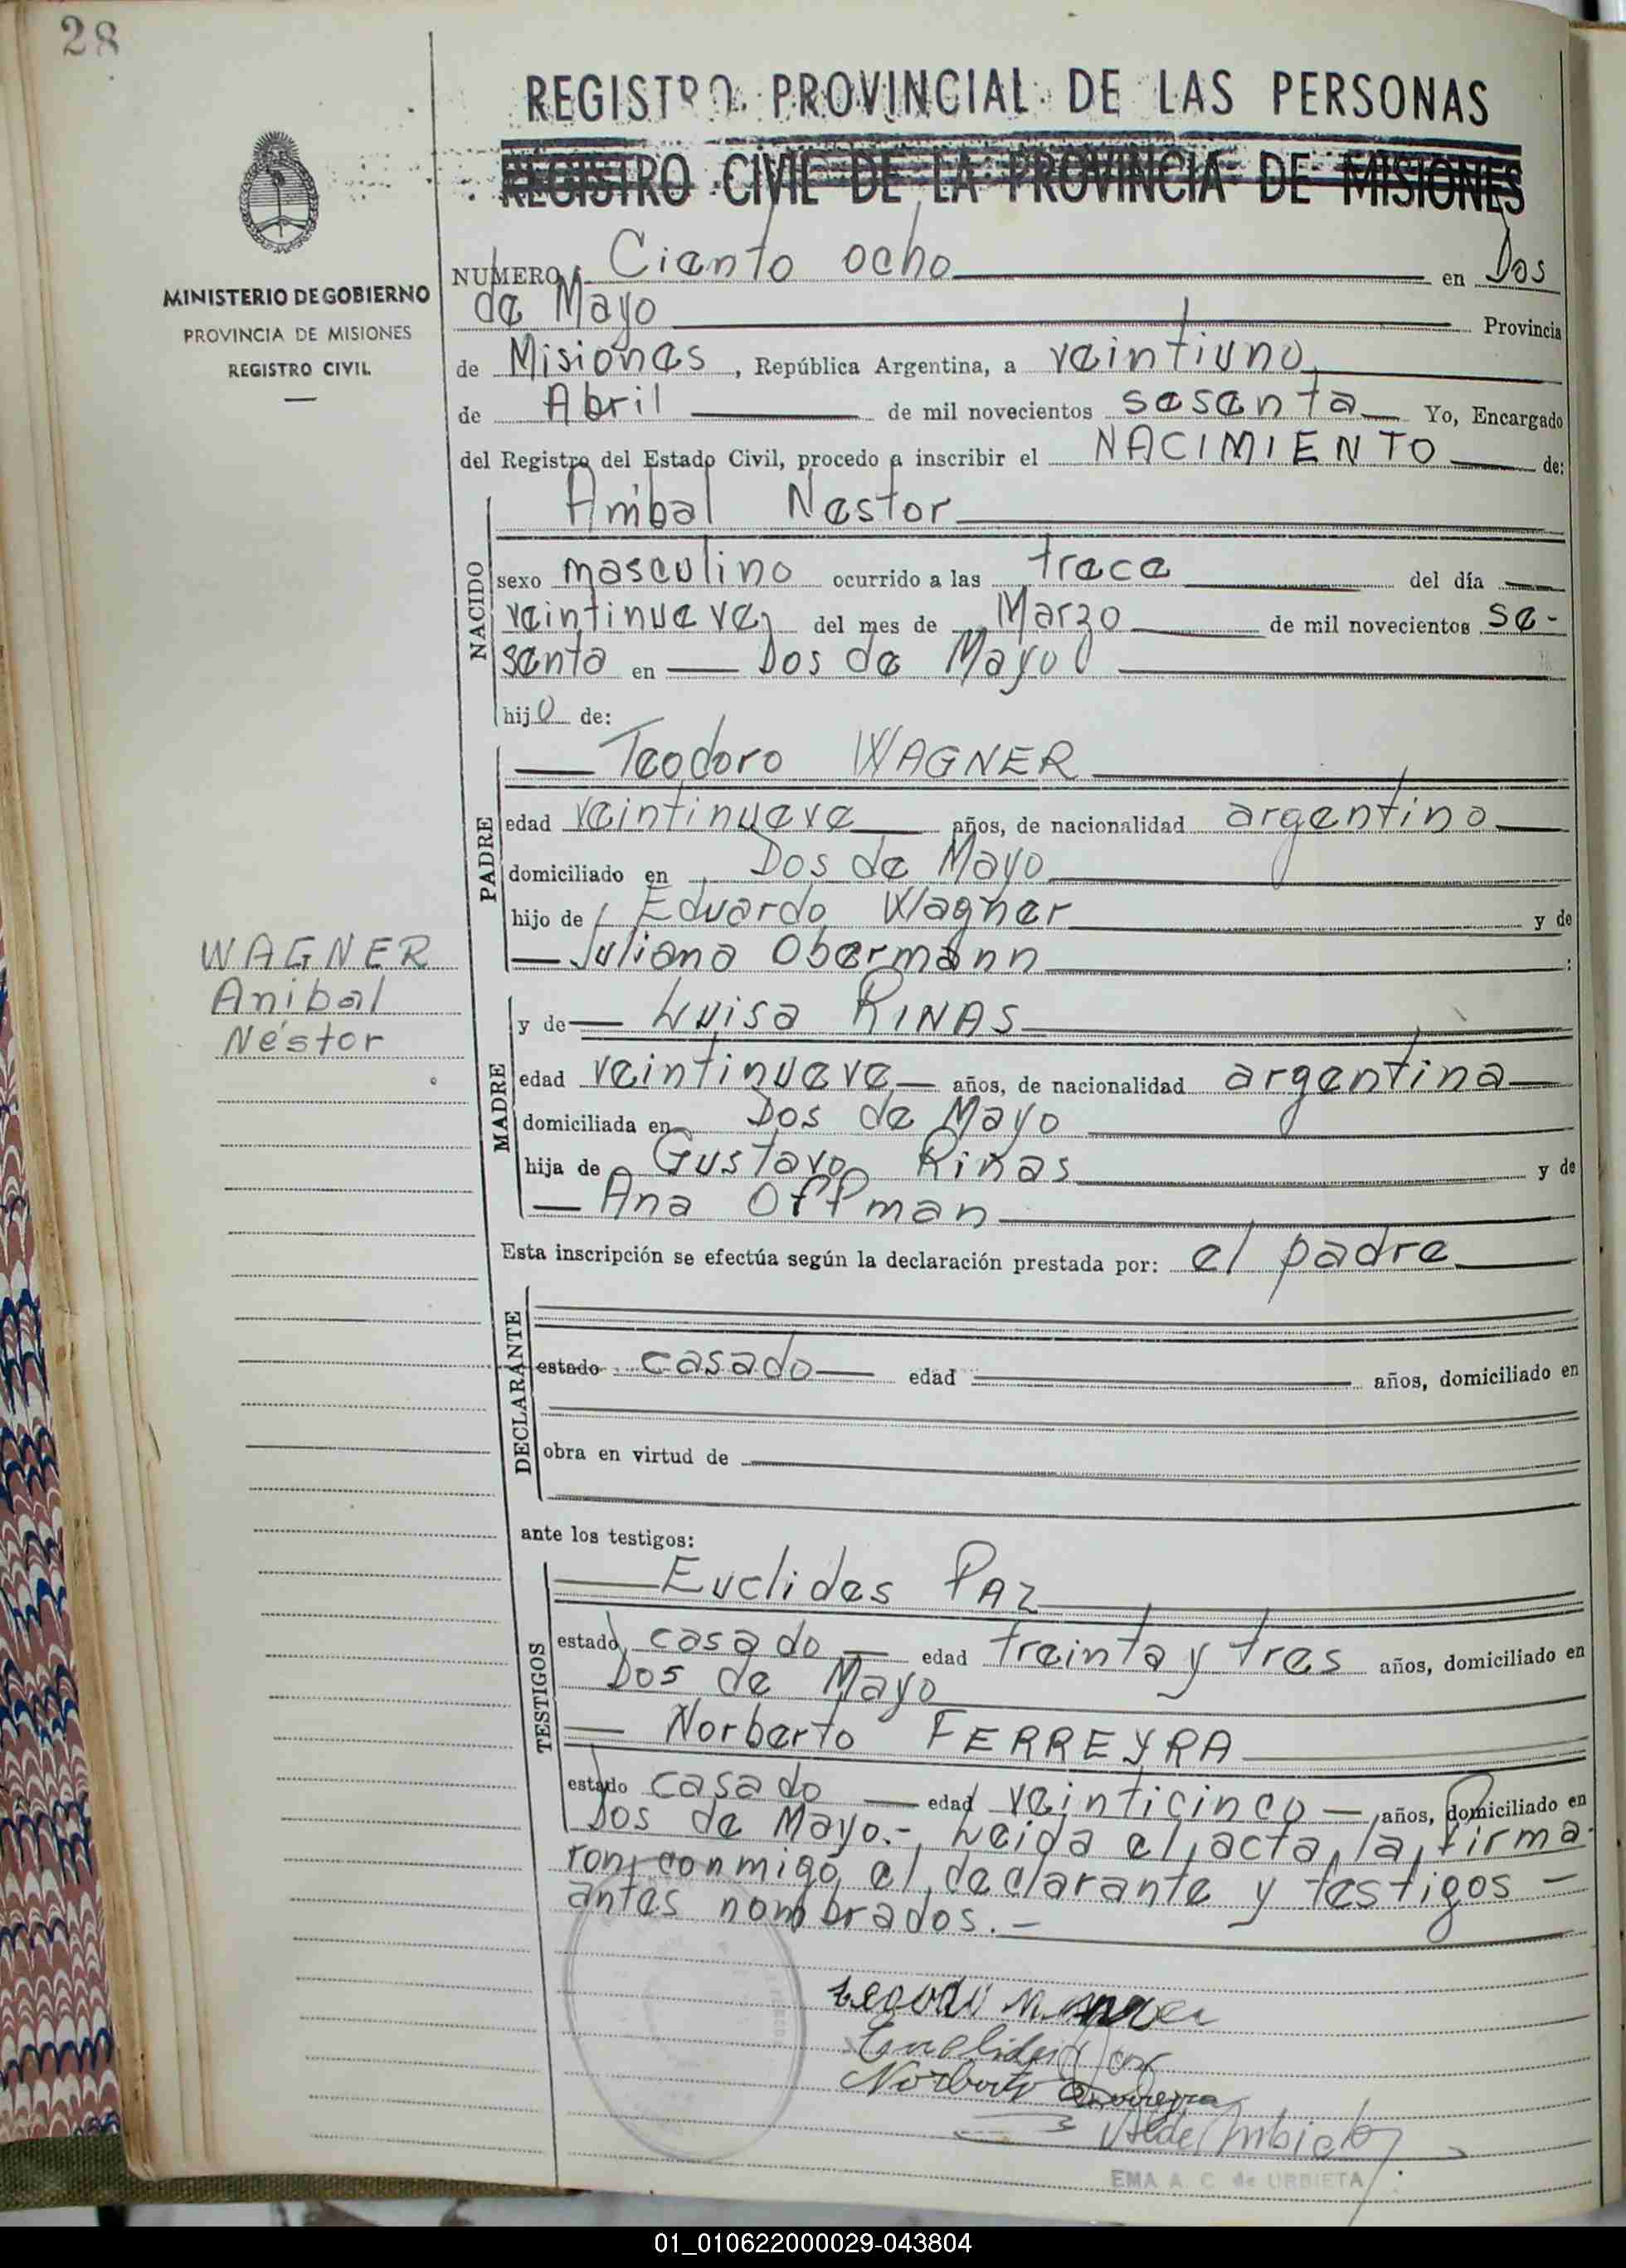 28
REGISTRO PROVINCIAL DE LAS PERSONAS
REGISTRO CIVIL DE LA PROVINCIA DE MISIONES
MINISTERIO DE GOBIERNO
PROVINCIA DE MISIONES
REGISTRO CIVIL
NUMERO Ciento ocho en Dos
de Mayo Provincia
de Misiones, República Argentina, a veintiuno
de Abril de mil novecientos sesenta Yo, Encargado
del Registro del Estado Civil, procedo a inscribir el NACIMIENTO de:
NACIDO
Anibal Nestor
sexo masculino ocurrido a las trece del día
veintinueve del mes de Marzo de mil novecientos se-
senta en Dos de Mayo
hijo de:
PADRE
Teodoro WAGNER
edad veintinueve años, de nacionalidad argentino
domiciliado en Dos de Mayo
hijo de Eduardo Wagner y de
Juliana Obermann :
WAGNER
Anibal
Néstor
MADRE
y de Luisa RINAS
edad veintinueve años, de nacionalidad argentina
domiciliada en Dos de Mayo
hija de Gustavo Rinas y de
Ana Offman
Esta inscripción se efectúa según la declaración prestada por: el padre
DECLARANTE
estado casado edad años, domiciliado en
obra en virtud de
ante los testigos:
TESTIGOS
Euclides PAZ
estado casado edad treinta y tres años, domiciliado en
Dos de Mayo
Norberto FERREYRA
estado casado edad veinticinco años, domiciliado en
Dos de Mayo.- Leida el acta, la firma-
ron conmigo, el declarante y testigos
antes nombrados.-
Norberto Ferreyra
EMA A. C. de URBIETA
01_010622000029-043804